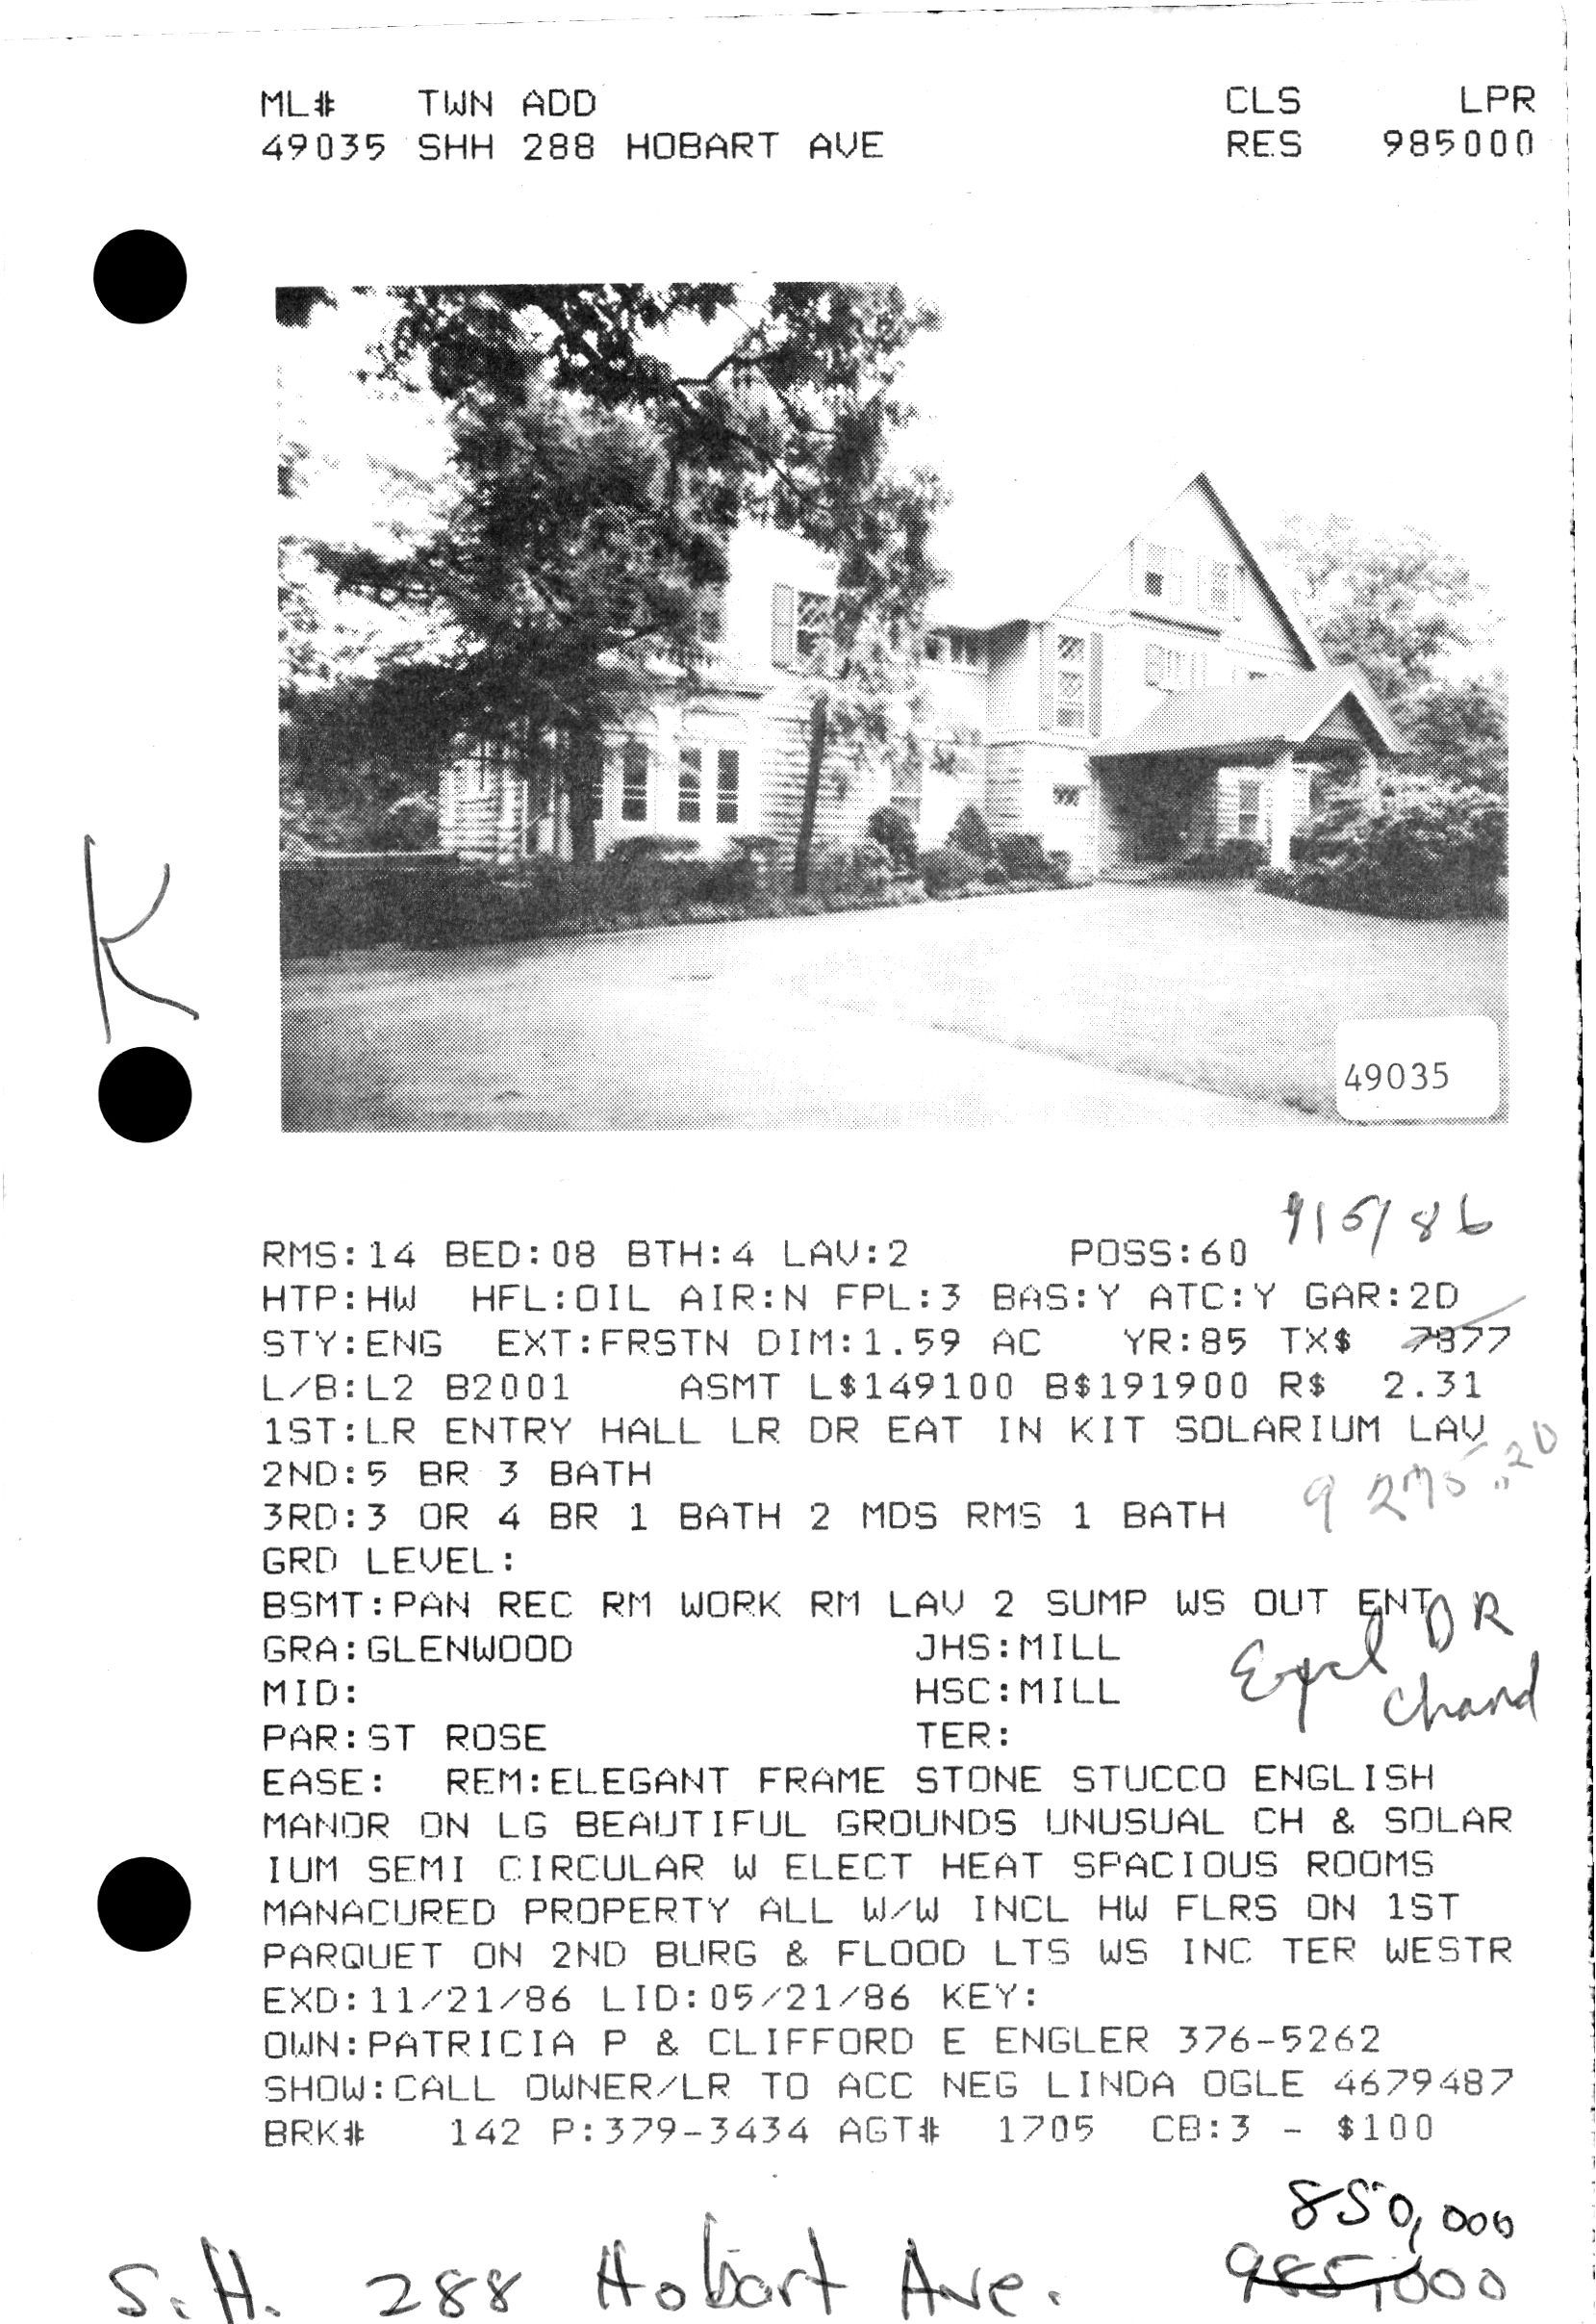 ML# TWN ADD CLS LPR
49035 SHH 288 HOBART AVE RES 985000
K
49035
RMS:14 BED:08 BTH:4 LAV:2 POSS:60
HTP:HW HFL:OIL AIR:N FPL:3 BAS:Y ATC:Y GAR:2D
STY:ENG EXT:FRSTN DIM:1.59 AC YR:85 TX$ 7877
L/B:L2 B2001 ASMT L$149100 B$191900 R$ 2.31
1ST:LR ENTRY HALL LR DR EAT IN KIT SOLARIUM LAV
2ND:5 BR 3 BATH
3RD:3 OR 4 BR 1 BATH 2 MDS RMS 1 BATH
GRD LEVEL:
BSMT:PAN REC RM WORK RM LAV 2 SUMP WS OUT ENT
DR
GRA:GLENWOOD JHS:MILL
MID: HSC:MILL
Chand
PAR:ST ROSE TER:
EASE: REM:ELEGANT FRAME STONE STUCCO ENGLISH
MANOR ON LG BEAUTIFUL GROUNDS UNUSUAL CH & SOLAR
IUM SEMI CIRCULAR W ELECT HEAT SPACIOUS ROOMS
MANACURED PROPERTY ALL W/W INCL HW FLRS ON 1ST
PARQUET ON 2ND BURG & FLOOD LTS WS INC TER WESTR
EXD:11/21/86 LID:05/21/86 KEY:
OWN:PATRICIA P & CLIFFORD E ENGLER 376-5262
SHOW:CALL OWNER/LR TO ACC NEG LINDA OGLE 4679487
BRK# 142 P:379-3434 AGT# 1705 CB:3 - $100
850,000
S.H. 288 Hobart Ave. 985,000